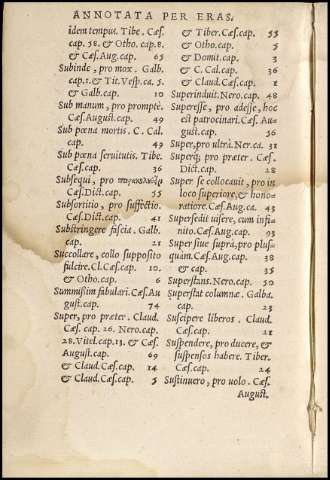 ANNOTATA PER ERAS.
idem tempus. Tibe. Cæs.
cap. 58. & Otho. cap. 8.
& Cæs. Aug. cap. 65
Subinde, pro mox. Galb.
cap. 1. & Tit. Vesp. ca. 5
& Galb. cap. 10
Sub manum, pro promptè.
Cæs. August. cap. 49
Sub pœna mortis. C. Cal.
cap. 49
Sub pœna seruitutis. Tibe.
Cæs. cap. 36
Subsequi, pro
Cæs. Dict. cap. 55
Subsortitio, pro suffectio.
Cæs. Dict. cap. 41
Substringere fascia. Galb.
cap. 21
Succollare, collo supposito
fulcire. Cl. Cæs. cap. 10.
& Otho. cap. 6
Summissim fabulari. Cæs. Au
gust. cap. 74
Super, pro præter. Claud.
Cæs. cap. 26. Nero. cap.
28. Vitel. cap. 13. & Cæs.
August. cap. 69
& Claud. Cæs. cap. 14
& Claud. Cæs. cap. 5
& Tiber. Cæs. cap. 55
& Otho. cap. 5
& Domit. cap. 3
& C. Cal. cap. 36
& Claud. Cæs. cap. 1
Superinduit. Nero. cap. 48
Superesse, pro adesse, hoc
est patrocinari. Cæs. Au-
gust. cap. 56
Super, pro ultra. Ner. ca. 31
Superq; pro præter. Cæs.
Dict. cap. 28
Super se collocauit, pro in
loco superiore, & hono-
ratiore. Cæs. Aug. ca. 43
Supersedit uisere, cum infi-
nito. Cæs. Aug. cap. 93
Super siue supra, pro plus-
quàm. Cæs. Aug. cap. 38
& cap. 35
Superstans. Nero. cap. 50
Superstat columnæ. Galba.
cap. 23
Suscipere liberos. Claud.
Cæs. cap. 21
Suspendere, pro ducere, &
suspensos habere. Tiber.
Cæs. cap. 24
Sustinuero, pro uolo. Cæs.
August.